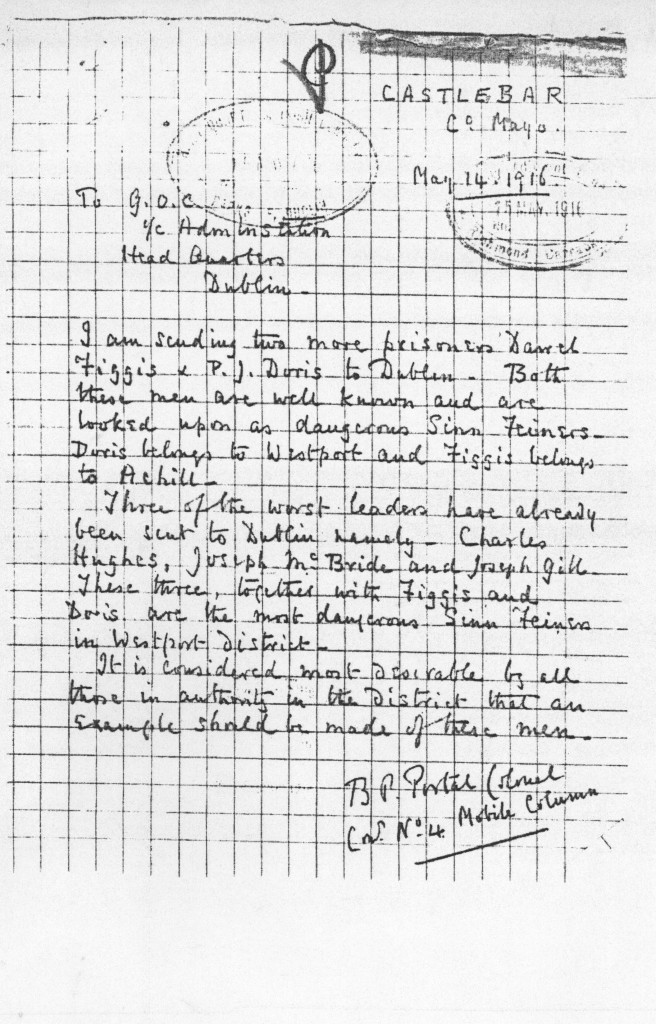 CASTLEBAR
Co. Mayo.
May 14. 1916
15 MAY. 1916
Richmond Barracks
To G.O.C.
i/c Administration
Head Quarters
Dublin -
I am sending two more prisoners Darrel
Figgis & P. J. Doris to Dublin - Both
these men are well known and are
looked upon as dangerous Sinn Feiners -
Doris belongs to Westport and Figgis belongs
to Achill -
Three of the worst leaders have already
been sent to Dublin namely - Charles
Hughes, Joseph McBride and Joseph Gill -
These three, together with Figgis and
Doris are the most dangerous Sinn Feiners
in Westport District -
It is considered most desirable by all
those in authority in the District that an
example should be made of these men -
B P. Portal Colonel
Com. No 4 Mobile Column